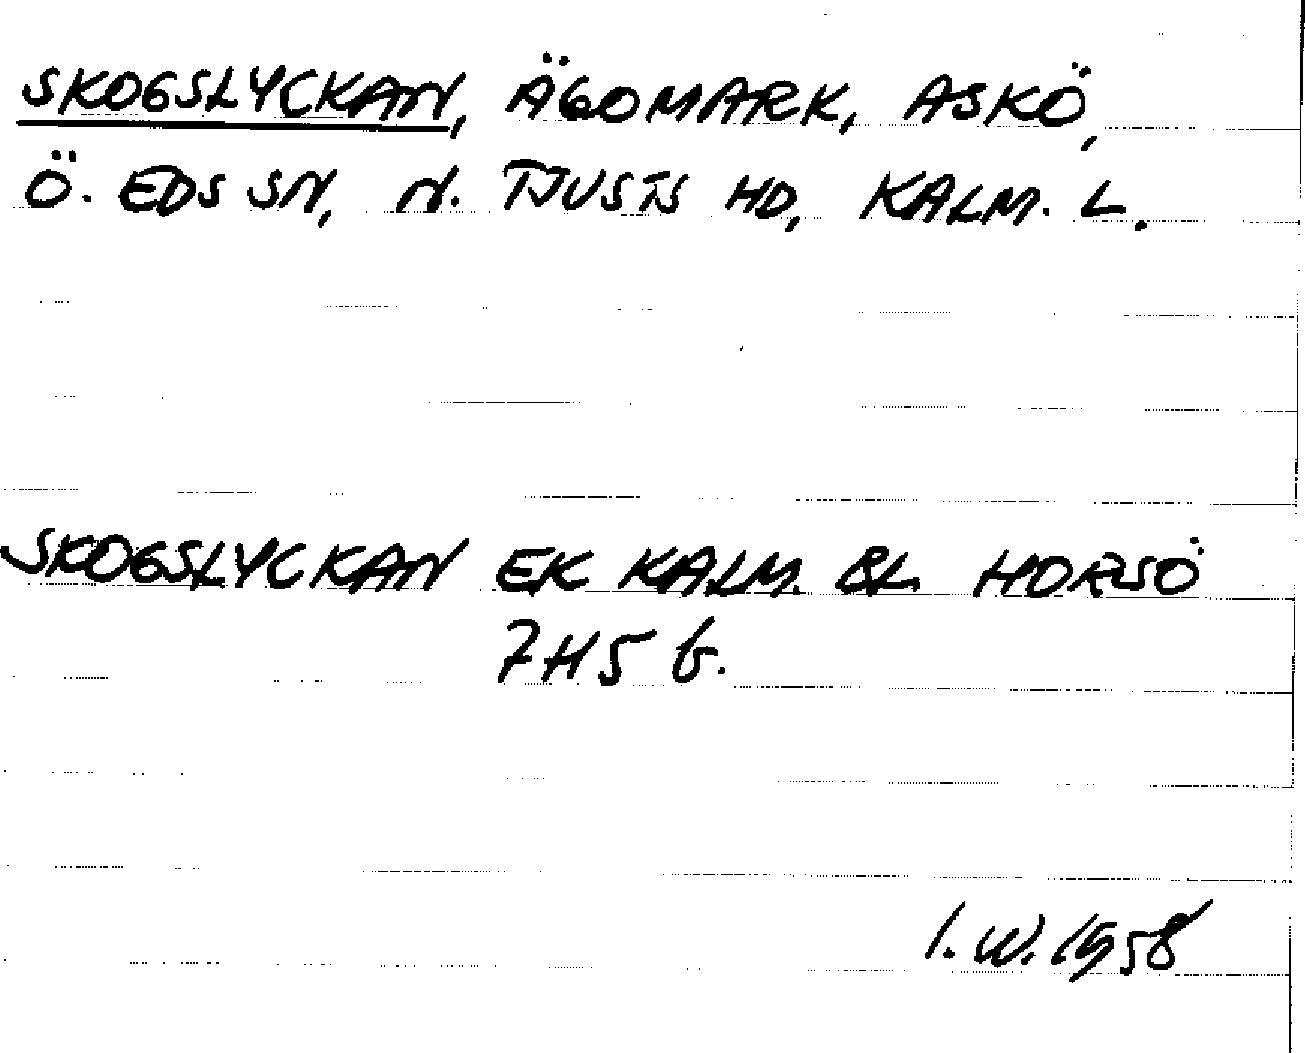 SKOGSLYCKAN, ÄGOMARK, ASKÖ,
Ö. EDS SN, N. TJUSTS HD, KALM. L.
SKOGSLYCKAN EK KALM. BL. HORSÖ
7H5 b.
I. W. 1958